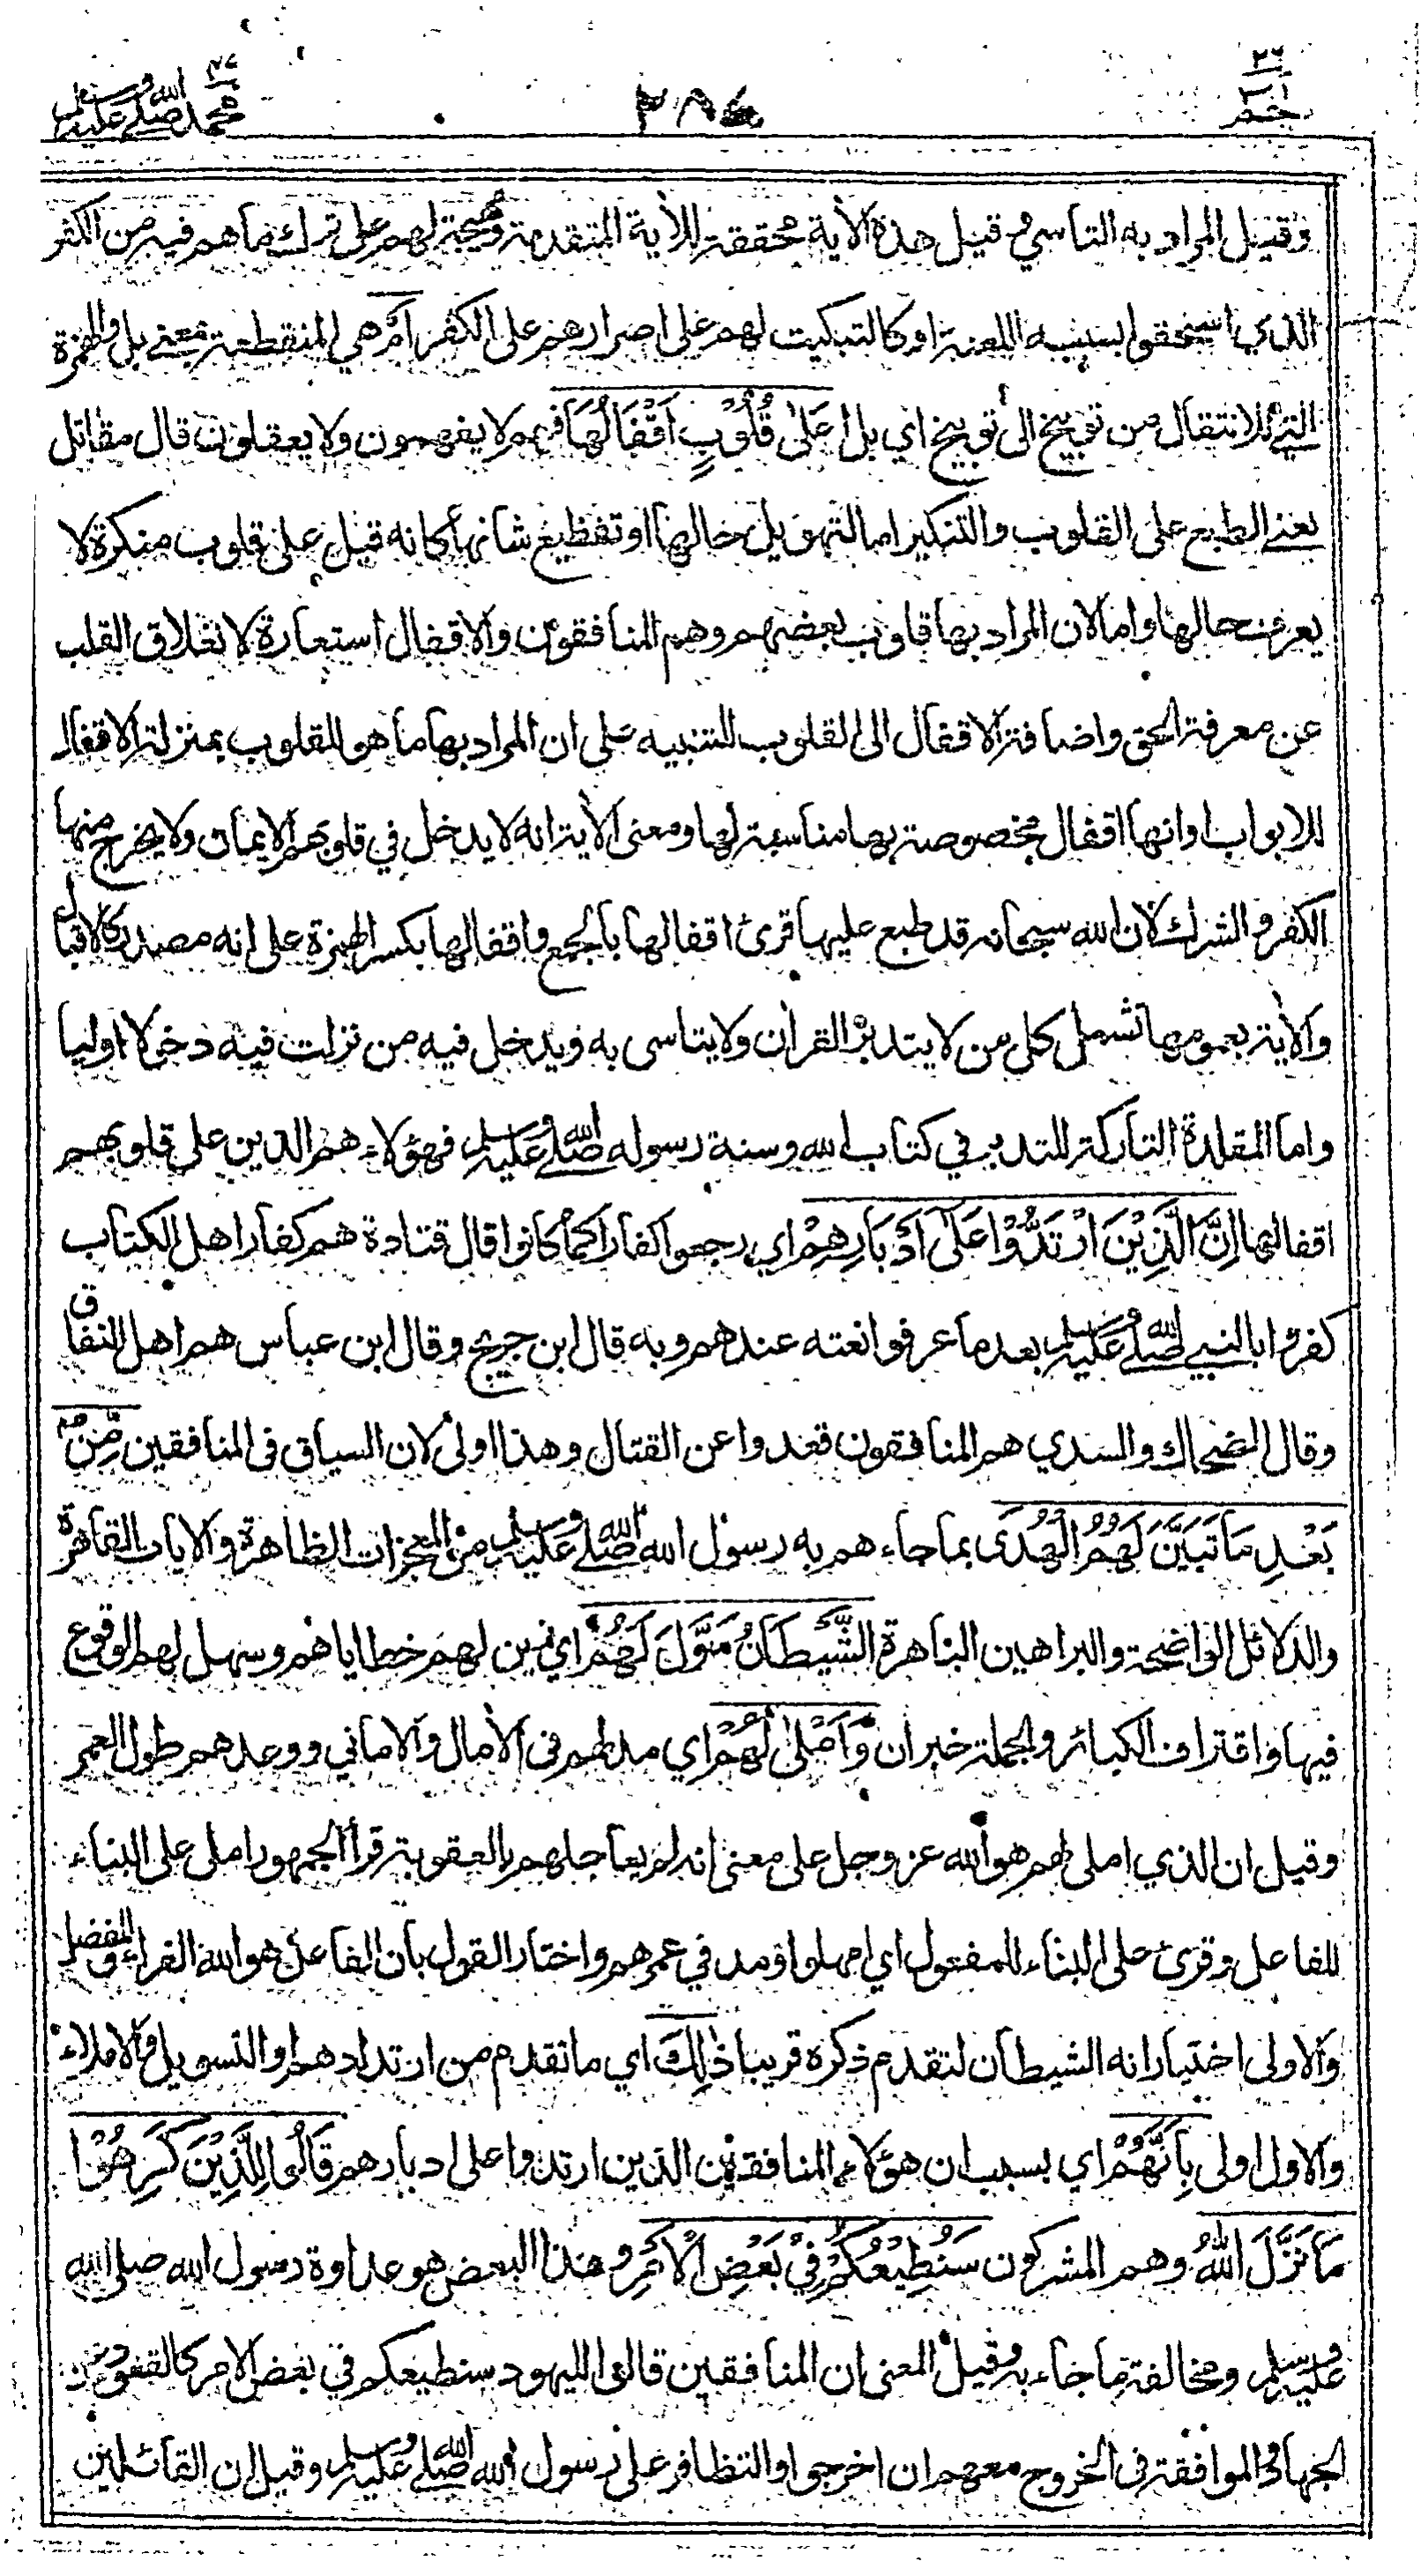 حٰم ٢٦
٣٨٤
محمد صلى الله عليه وسلم ٤٧
وقيل المراد به التاسي وقيل هذه الأية محققة للأية المتقدمة ومهيجة لهم على ترك ما هم فيه من الكفر
الذي استحقوا بسببه اللعنة او كالتبكيت لهم على اصرارهم على الكفر اَمْ هي المنقطعة بمعنى بل والهمزة
التي للانتقال من توبيخ الى توبيخ اي بل أ عَلىٰ قُلُوْبٍ اَقْفَالُهَا فهم لا يفهمون ولا يعقلون قال مقاتل
يعني الطبع على القلوب والتنكير اما لتهويل حالها او تفظيع شانها كانه قيل على قلوب منكرة لا
يعرف حالها واما لان المراد بها قلوب بعضهم وهم المنافقون والاقفال استعارة لانغلاق القلب
عن معرفة الحق واضافة الاقفال الى القلوب للتنبيه على ان المراد بها ما هو للقلوب بمنزلة الاقفال
للابواب او انها اقفال مخصوصة بها مناسبة لها ومعنى الأية انه لا يدخل في قلوبهم الايمان ولا يخرج منها
الكفر والشرك لان الله سبحانه قد طبع عليها قرئ اقفالها بالجمع واقفالها بكسر الهمزة على انه مصدر كالاقبال
والأية بعمومها تشمل كل من لا يتدبر القرأن ولا يتاسى به ويدخل فيه من نزلت فيه دخولا اوليا
واما المقلدة التاركة للتدبر في كتاب الله وسنة رسوله صلى الله عليه وسلم فهؤلاء هم الذين على قلوبهم
اقفالها اِنَّ الَّذِيْنَ ارْتَدُّوْا عَلىٰٓ اَدْبَارِهِمْ اي رجعوا كفارا كما كانوا قال قتادة هم كفار اهل الكتاب
كفروا بالنبي صلى الله عليه وسلم بعد ما عرفوا نعته عندهم وبه قال ابن جريج وقال ابن عباس هم اهل النفاق
وقال الضحاك والسدي هم المنافقون قعدوا عن القتال وهذا اولى لان السياق في المنافقين مِّنْ
بَعْدِ مَا تَبَيَّنَ لَهُمُ الْهُدَى بما جاءهم به رسول الله صلى الله عليه وسلم من المعجزات الظاهرة والايات القاهرة
والدلائل الواضحة والبراهين الباهرة الشَّيْطَانُ سَوَّلَ لَهُمْ اي زين لهم خطاياهم وسهل لهم الوقوع
فيها واقتراف الكبائر والجملة خبر ان وَاَمْلىٰ لَهُمْ اي مد لهم في الأمال والاماني ووعدهم طول العمر
وقيل ان الذي املى لهم هو الله عز وجل على معنى انه لم يعاجلهم بالعقوبة قرأ الجمهور املى على البناء
للفاعل وقرئ على البناء للمفعول اي امهلوا ومد في عمرهم واختار القول بان الفاعل هو الله الفراء والمفضل
والاولى اختيار انه الشيطان لتقدم ذكره قريبا ذٰلِكَ اي ما تقدم من ارتدادهم او التسويل والاملاء
والاول اولى بِاَنَّهُمْ اي بسبب ان هؤلاء المنافقين الذين ارتدوا على ادبارهم قَالُوْا لِلَّذِيْنَ كَرِهُوْا
مَا نَزَّلَ اللّٰهُ وهم المشركون سَنُطِيْعُكُمْ فِيْ بَعْضِ الْاَمْرِ وهذا البعض هو عداوة رسول الله صلى الله
عليه وسلم ومخالفة ما جاء به وقيل المعنى ان المنافقين قالوا لليهود سنطيعكم في بعض الامر كالقعود عن
الجهاد والموافقة في الخروج معهم ان اخرجوا والتظافر على رسول الله صلى الله عليه وسلم وقيل ان القائلين